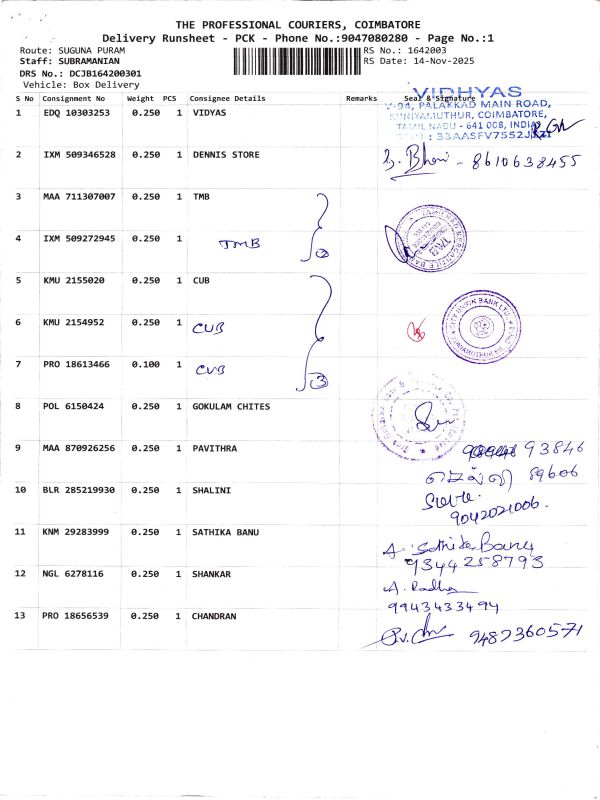 THE PROFESSIONAL COURIERS, COIMBATORE
Delivery Runsheet - PCK - Phone No.:9047080280 - Page No.:1
Route: SUGUNA PURAM RS No.: 1642003
Staff: SUBRAMANIAN RS Date: 14-Nov-2025
DRS No.: DCJB164200301
Vehicle: Box Delivery
S No Consignment No Weight PCS Consignee Details Remarks Seal & Signature
VIDHYAS
V-94, PALAKKAD MAIN ROAD,
KUNIYAMUTHUR, COIMBATORE,
TAMIL NADU - 641 008, INDIA
33AASFV7552J
1 EDQ 10303253 0.250 1 VIDYAS
2 IXM 509346528 0.250 1 DENNIS STORE - 8610638455
3 MAA 711307007 0.250 1 TMB
4 IXM 509272945 0.250 1 TMB 2
5 KMU 2155020 0.250 1 CUB
6 KMU 2154952 0.250 1 CUB
CITY UNION BANK LTD.
7 PRO 18613466 0.100 1 CUB 3
8 POL 6150424 0.250 1 GOKULAM CHITES
9 MAA 870926256 0.250 1 PAVITHRA 93846
89606
10 BLR 285219930 0.250 1 SHALINI
9042021006.
11 KNM 29283999 0.250 1 SATHIKA BANU A. Sathika Banu
9344258793
12 NGL 6278116 0.250 1 SHANKAR A. Radha
9943433494
13 PRO 18656539 0.250 1 CHANDRAN 9487360571